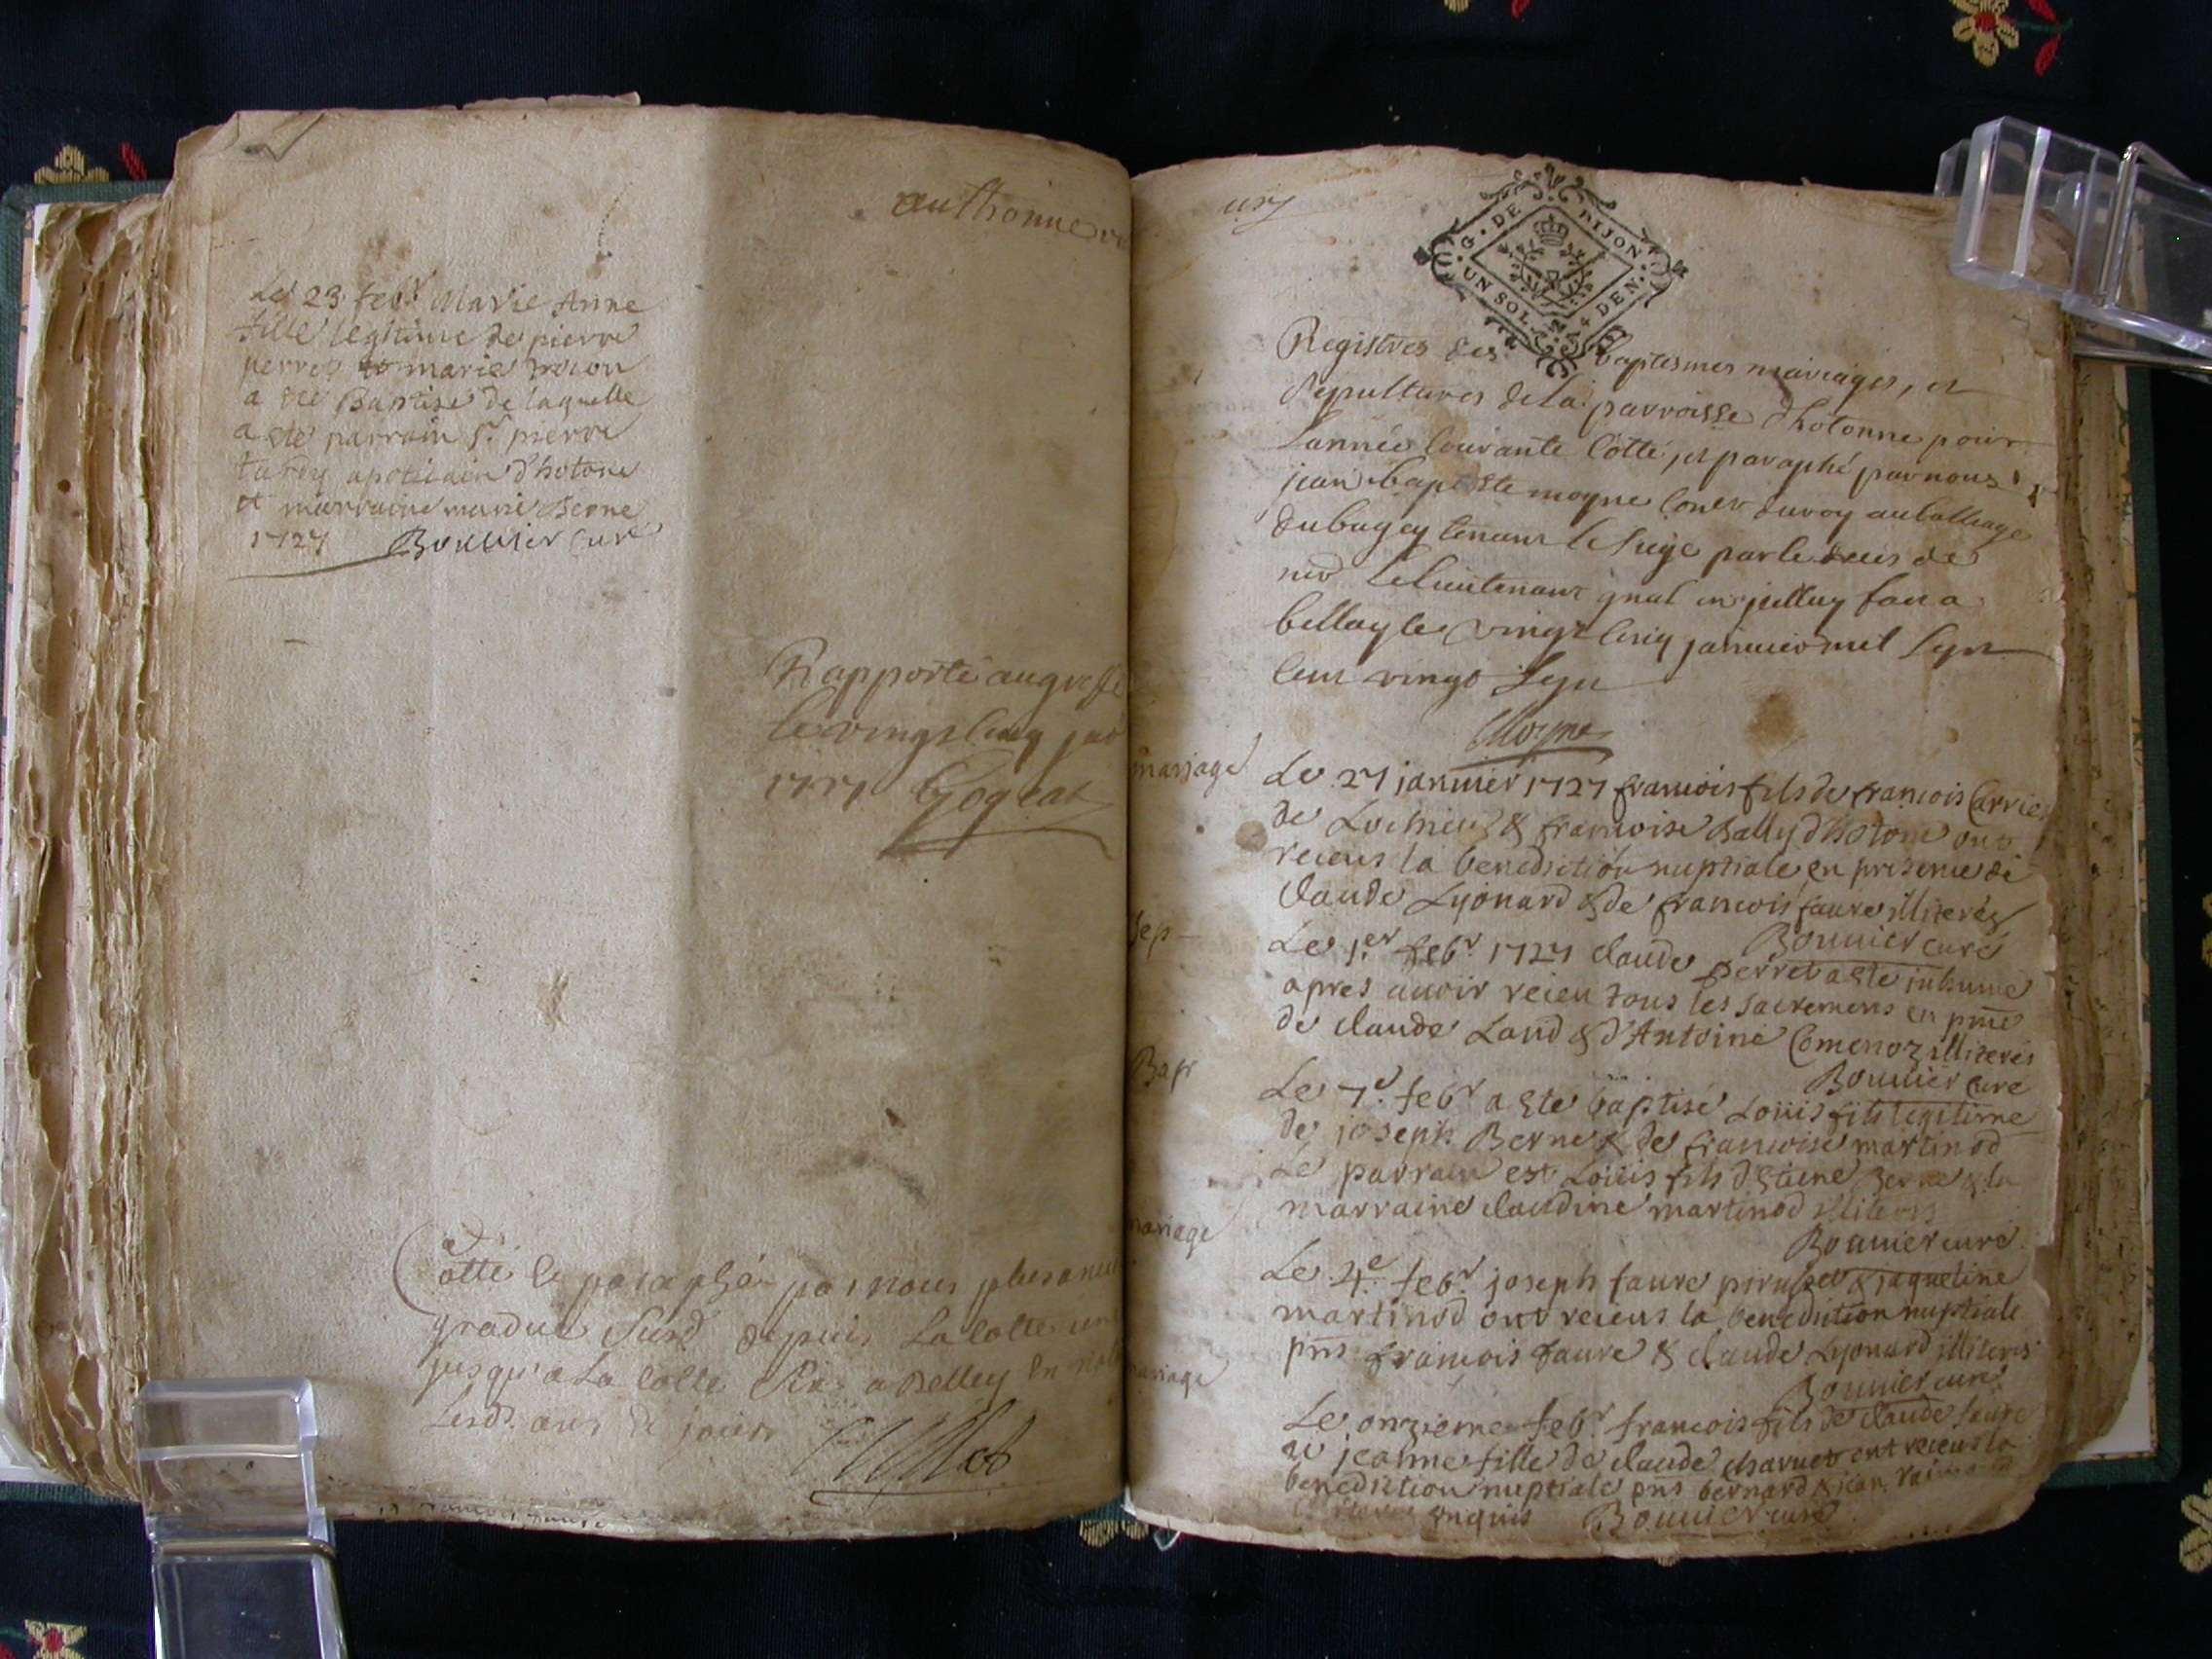 authonne
Le 23 febr Marie Anne
fille legitime de pierre
perret et marie
a eté Baptisé de laquelle
a eté parrain Sr. pierre
tardy apoticaire d'hotone
et marraine marie Berne
1727 Bouuier curé
Rapporté au greffe
le vingt cinq jan
1727
Cotté & paraphé par nous plus ancien
gradué Susd depuis La Cotte un
jusqu'a La Cotte Six a Belley
Lesd. ans & jours
un
G. DE DIJON
UN SOL. 4 DEN.
Registres des baptesmes mariages, et
Sepultures de la parroisse d'hotonne pour
Lannée Courante Cotté, et paraphé par nous
jean baptiste moyne Coner du roy au balliage
du bugey tenant le Siege par le deces de
Le Lieutenant gnal
belley le vingt Cinq janvier mil Sept
Cent vingt Sept
Moyne
mariage
Le 27 januier 1727 francois fils de francois Carrier
de Lochieu & francoise Bally d'hotone ont
receus la benediction nuptiale en presence de
Claude Lyonard & de francois faure illiterés
Bouuier curé
Sep
Le 1.er febr 1727 Claude perret a eté inhumé
apres auoir receu tous les sacremens en pnce
de claude Land & d'Antoine Comenoz illiterés
Bouuier curé
Bapt
Le 7.e febr a eté baptisé Loüis fils legitime
de joseph Berne & de francoise martinod
Le parrain est Loüis fils d'Etiene Berne & la
marraine claudine martinod illiterés
Bouuier curé
mariage
Le 4.e febr joseph faure & jaqueline
martinod ont receus la benediction nuptiale
pnts francois faure & claude Lyonard illiterés
Bouuier curé
mariage
Le onzieme febr francois fils de claude faure
et jeanne fille de claude charuet ont receus la
benediction nuptiale pnts bernard & jean
enquis Bouuier curé